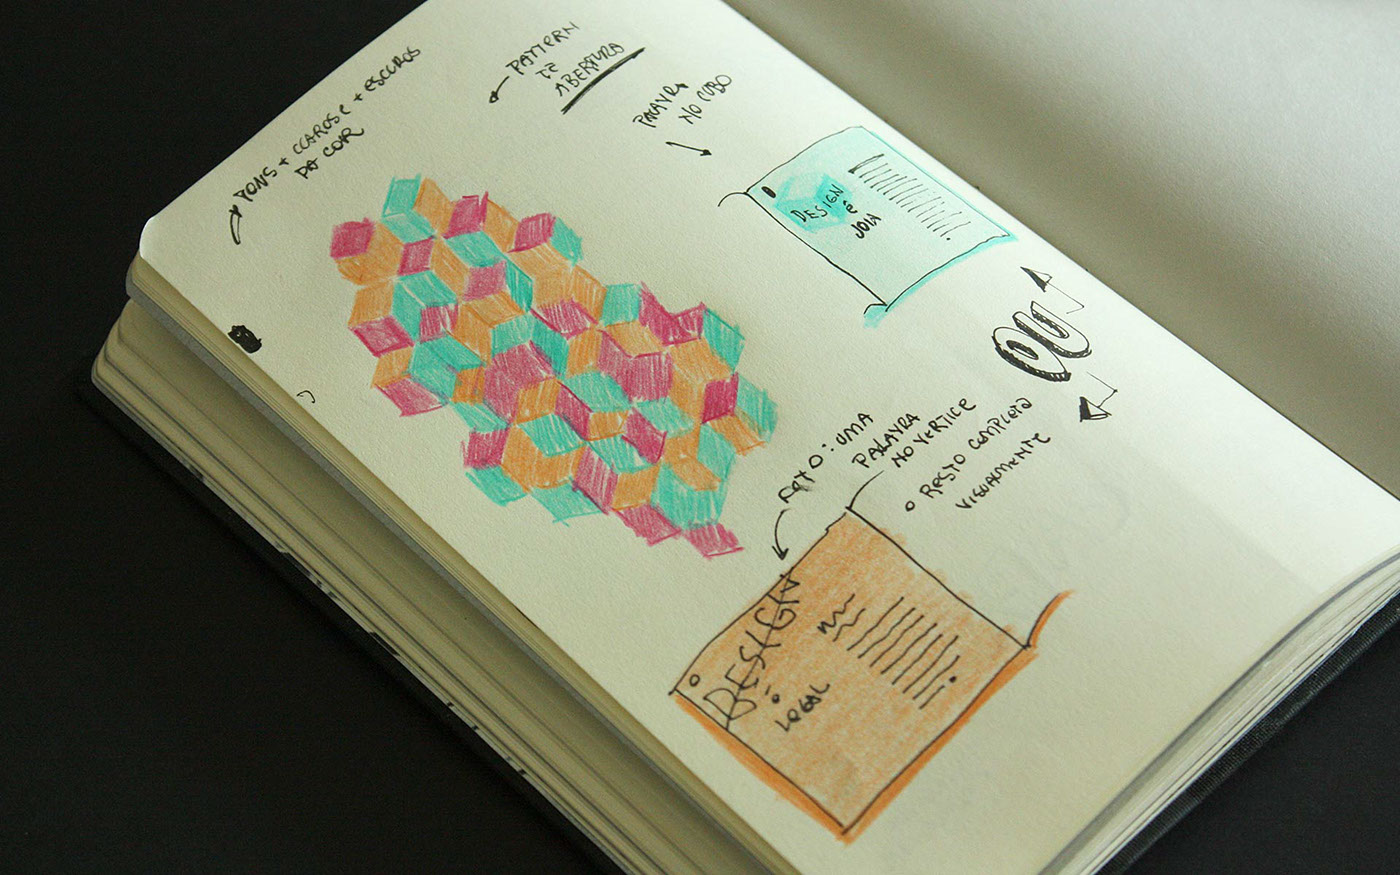 TONS + CLAROS E + ESCUROS
DA COR
PATTERN
DE
ABERTURA
PALAVRA
NO CUBO
DESIGN
é
JOIA
OU
FOTO: UMA
PALAVRA
NO VERTICE
O RESTO COMPLETA
VISUALMENTE
DESIGN
é
LEGAL